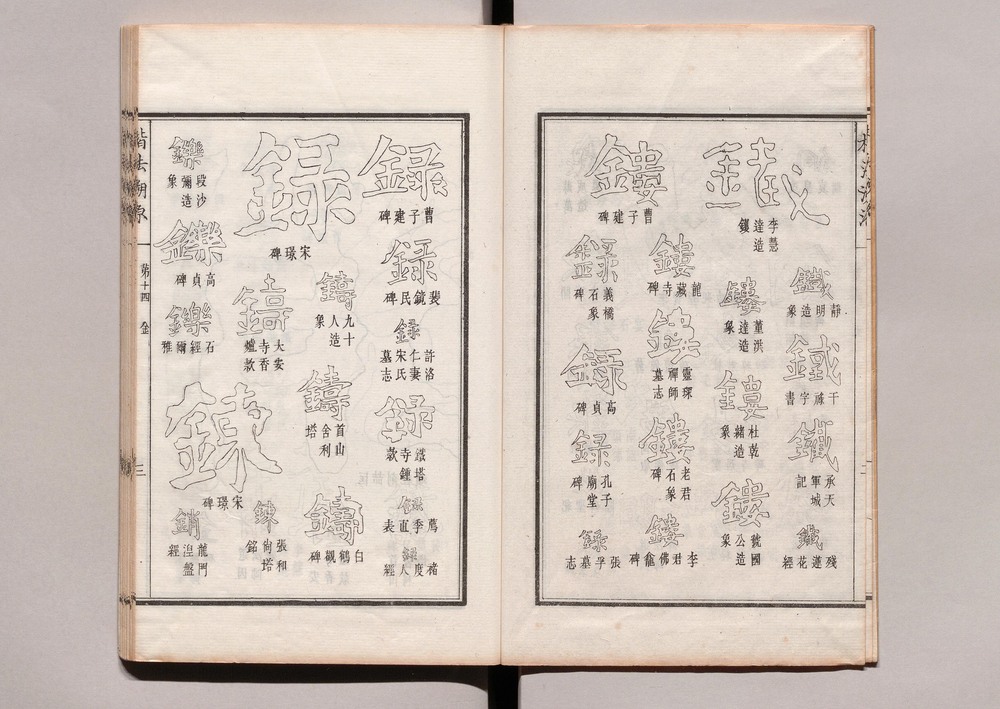 鐵
李慧達造鑊
鐵
靜明造象
鐵
干祿字書
鐵
承天軍城記
鐵
殘蓮花經
鏤
董洪達造象
鏤
杜乾緒造象
鏤
虢國公造象
鏤
曹子建碑
鏤
龍藏寺碑
鏤
靈琛禪師墓志
鏤
老君石象碑
鏤
李君佛龕碑
録
義橋石象碑
録
高貞碑
録
孔子廟堂碑
録
張孚墓志
録
曹子建碑
録
裴鏡民碑
録
許洛仁妻宋氏墓志
録
鐵塔寺鍾款
録
薦季直表
録
褚度人經
録
宋璟碑
鑄
九十人造象
鑄
首山舍利塔
鑄
白鶴觀碑
鑄
大安寺香爐款
鍊
宋璟碑
鍊
張和尙塔銘
鑠
段沙彌造象
鑠
高貞碑
鑠
石經爾雅
銷
龍門涅盤經
楷法溯源
第十四 金
三